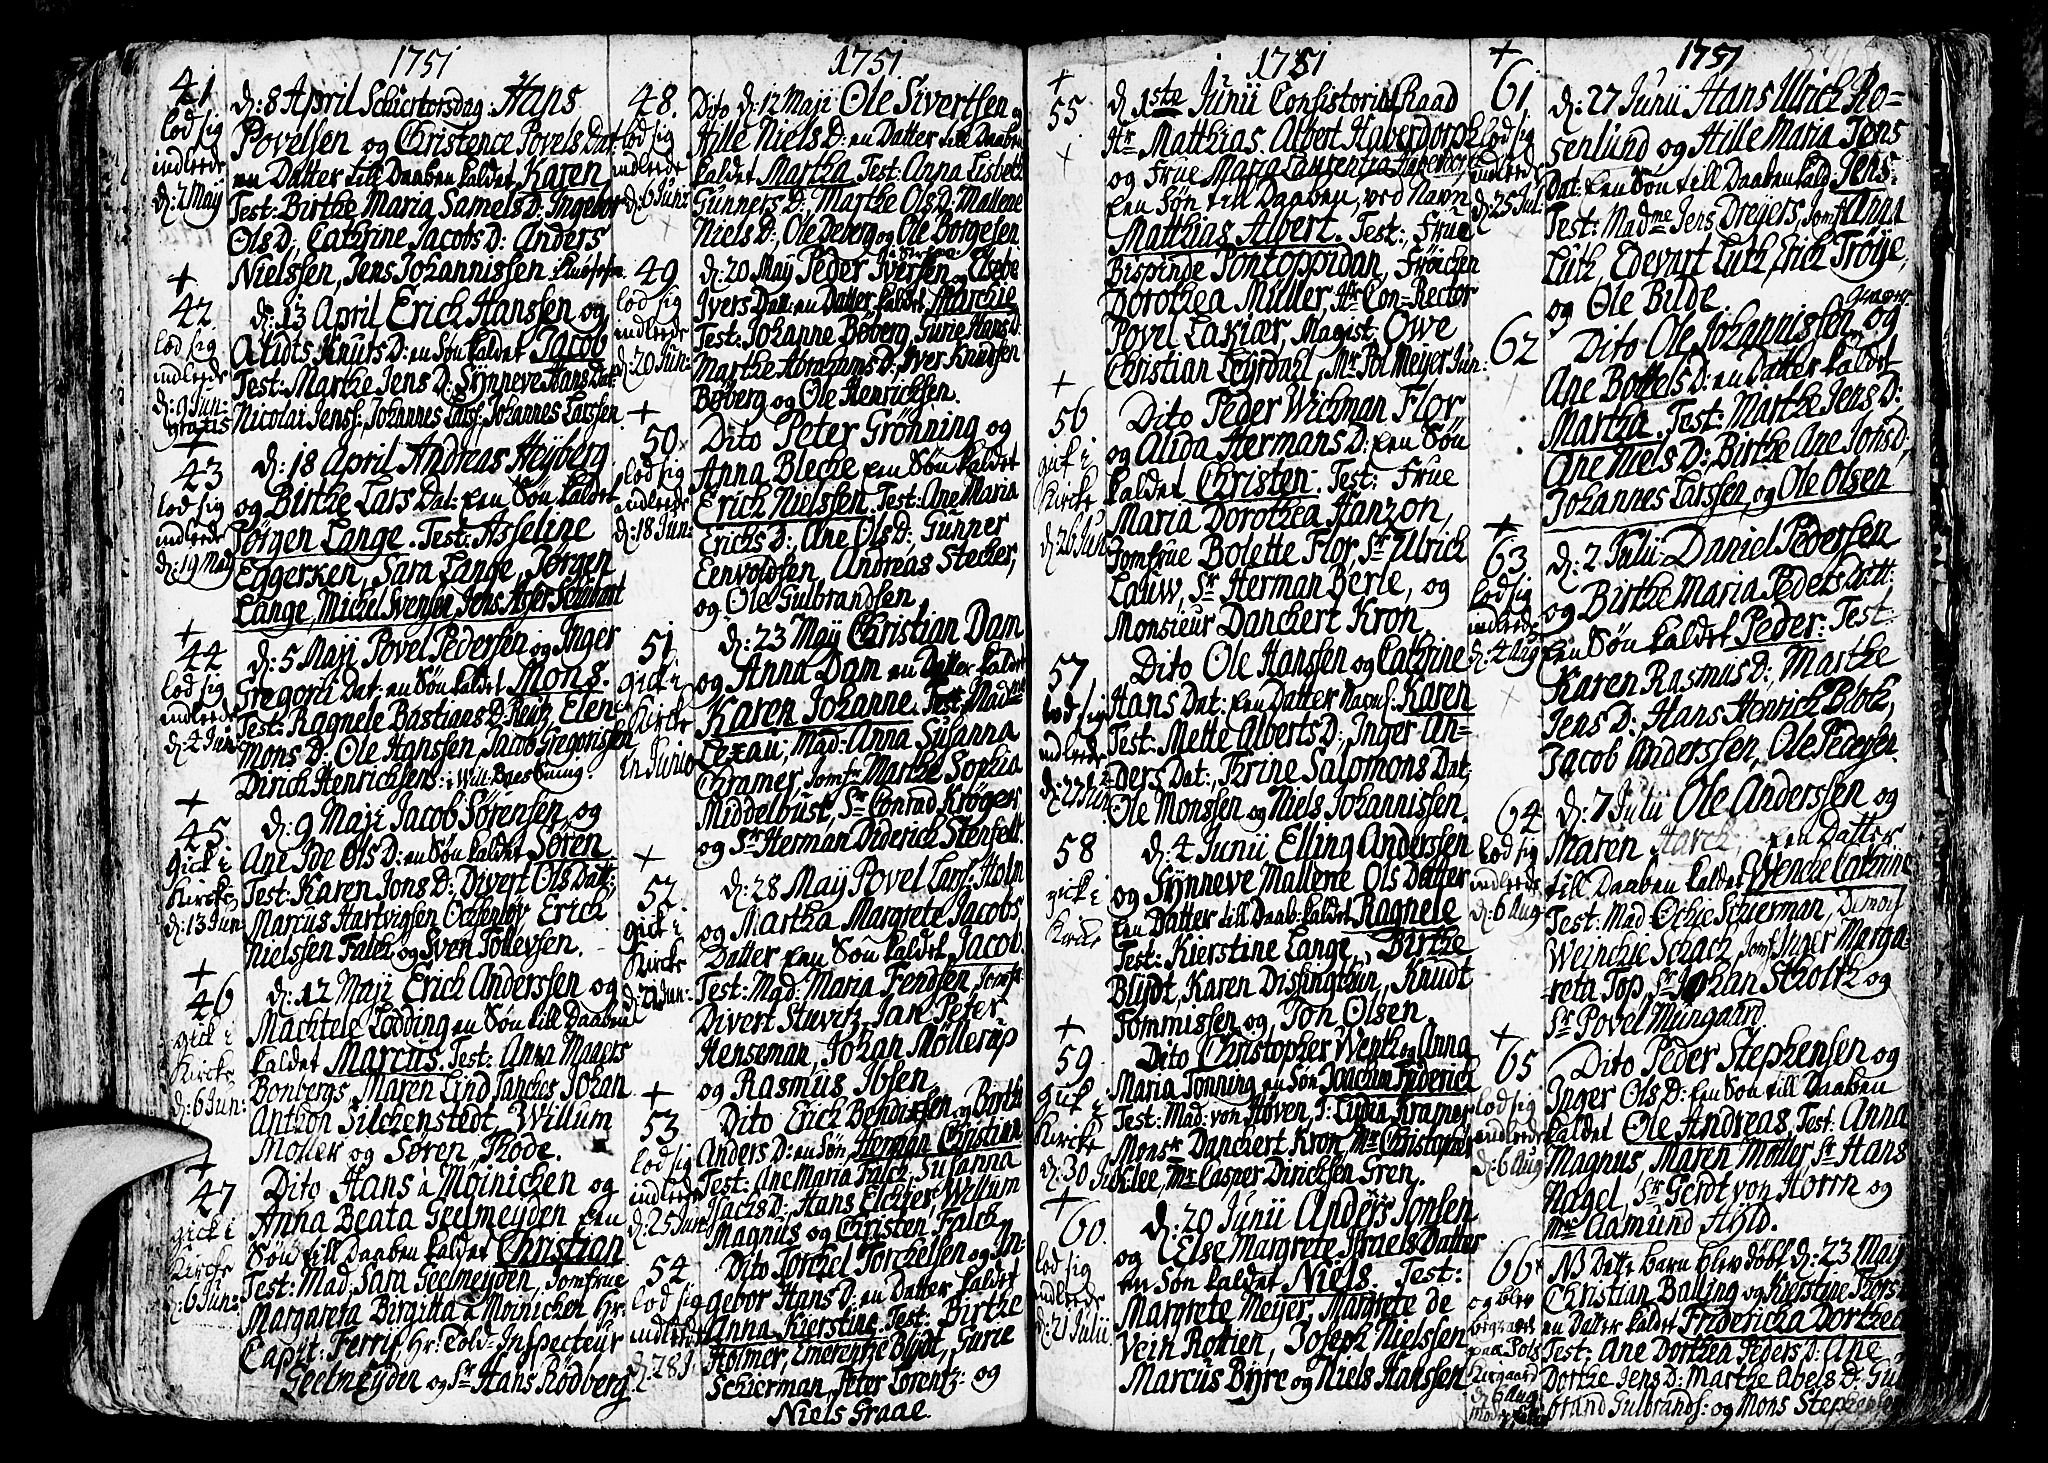 1751
41
lod sig
indleede
d: 2 May
d: 8 April Schiertorsdag: Hans
Povelsen og Christence Povels Dat
en Datter till Daaben kaldet Karen
Test: Birthe Maria Samels D: Ingebor
Ols D, Cathrine Jacobs D: Anders
Nielssen, Jens Johannissen
+
42
lod sig
indleede
d: 9 Jun:
gratis
d: 13 April Erich Hanssen og
Alidts Knuts D: en Søn kaldet Jacob
Test: Marthe Jens D: Sÿnneve Hans Dat:
Nicolai Jenss: Johannes Larss: Johannes Larssen
+
43
lod sig
indleede
d: 19 Maÿ
d: 18 April Andreas Heÿberg
og Birthe Lars Dat: een Søn kaldet
Jørgen Lange. Test: Asseline
Eggerken, Sara Lange, Jørgen
Lange, Michel Svensen Jens Asser Schubart
+
44
lod sig
indleede
d: 4 Jun:
d: 5 Maji Povel Pedersen og Inger
Gregorii Dat: en Søn kaldet Mons.
Test: Ragnele Bastians D: Reutz, Elen
Mons D: Ole Hanssen Jacob Gregorissen
Dirich Henrichsens:
+
45
gick i
Kircke
d: 13 Jun:
d: 9 Maji Jacob Sørensen, og
Ane Ide Ols D: en Søn kaldet Søren
Test: Karen Jons D: Divert Ols Dat:
Marcus Hartvigsen Ochenlov Erich
Nielssen Falck og Sven Tollevsen.
+
46
gick i
Kircke
d: 6 Jun:
d: 12 Maji Erich Anderssen og
Machtele Lodding en Søn till Daaben
kaldet Marcus. Test: Anna Magers
Bonbergs Maren Lind Janches Johan
Anthon Silchenstedt, Willum
Møller og Søren Trøde.
+
47
gick i
Kircke
d: 6 Jun:
Dito Hans à Møinichen og
Anna Beata Geelmeÿden een
Søn till Daaben kaldet Christian
Test: Mad: Sara Geelmeÿden, Jomfrue
Margareta Birgitta à Møinichen Hr:
Capit: Ferris, Hr: Told-Inspecteur
Geelmeÿden og Sr Hans Rødberg
1751
48.
lod sig
indleede
d: 6 Jun:
Dito d: 12 Maji Ole Sivertsen og
Hille Niels D: en Datter till Daaben
kaldet Martha Test: Anna Lisbeth
Gunners D: Marthe Ols D: Mallene
Niels D:, Ole Deberg og Ole Borgesen
49
lod sig
indleede
d: 20 Jun:
d: 20 Maÿ Peder Iversen Elsebe
Ivers Dat: en Datter kaldet Marchie
Test: Johanne Bøberg, Gurie Hans D:
Marthe Abrahams D: Iver Knudsen
Bøberg og Ole Henrichsen.
+
50
lod sig
indleede
d: 18 Jun:
Dito Peter Grønning og
Anna Blecke een Søn kaldet
Erich Nielssen Test: Ane Maria
Erichs D: Ane Ols D: Gunner
Eenvoldsen, Andreas Stecker,
og Ole Gulbrandsen,
51
gick i
Kircke
in Junio
d: 23 Maÿ Christian Dam
og Anna Dam en Datter kaldet
Karen Johanne. Test: Madme
Lexau, Mad: Anna Susanna
Chramer, Jomfr Marthe Sophia
Middelbust, Sr Conrad Krøger
og Sr Herman Diderich Stenfelt
+
52.
gick i
Kircke
d: 21 Jun:
d: 28 Maÿ Povel Larss: Holm
og Martha Margrete Jacobs
Datter een Søn kaldet Jacob.
Test: Mad: Maria Fendsen Jomfr:
Divert Stuvitz Jan Peter
Henseman, Johan Møllerup
og Rasmus Ibsen,
+
53
lod sig
indleede
d: 25 Jun:
Dito Erich Bendixsen og Birthe
Anders D: en Søn Herman Christian
Test: Ane Maria Falck, Susanna
Isachs D: Hans Elchier, Willum
Magnus og Christen Falck
54
lod sig
indleede
d: 28 J
Dito Torckel Torckelsen og In-
gebor Hans D: en Datter kaldet
Anna Kierstine Test: Birthe
Holmer, Emerentie Blÿdt, Gurie
Schierman, Peter Lorentz: og
Niels Graae.
1751
+
55
d. 1ste Junii Consistorial Raad
Hr Matthias Albert Haberdorph
og Frue Maria Laurentia Haberdorph
een Søn till Daaben, ved Navn
Matthias Albert. Test:, Frue
Bispinde Pontoppidan, Frøicken
Dorothea Müller, Hr Con-Rector
Povel Lakiær, Magist: Owe
Christian Leÿrdahl, Mr Pol Meÿer Jun:
+
56
gick i
Kircke
d: 26 Jun
Dito Peder Wichman Flor,
og Alida Hermans D: een Søn
kaldet Christen. Test: Frue
Maria Dorothea Hanzon,
Jomfrue Bolette Flor, Sr Ulrich
Lauw, Sr Herman Berle, og
Monsieur Danchert Kron
57
lod sig
indleede
d: 22 Jun:
Dito Ole Hanssen og Cathrine
Hans Dat: een Datter Nafnl: Karen
Test: Mette Alberts D:, Inger An-
ders Dat:, Trine Salomons Dat,
Ole Monssen og Niels Johannissen.
58
gick i
Kircke
d: 4 Junii Elling Anderssen
og Sÿnneve Mallene Ols Datter
een Datter till Daab: kaldet Ragnele
Test: Kierstine Lange, Birthe
Blÿdt, Karen Dissingthun, Knudt
Tommissen og, Jon Olsen.
+
59.
gick i
Kircke
d: 30 Jun
Dito Christopher Wenth og Anna
Maria Tonning en Søn Joachim Friderich
Test: Mad: von Høven, J: Lydia Kramer
Monsr Danchert Kron, Mr Christopher
Lee, Mr Casper Dirichsen Gren.
+
60
lod sig
indleede
d: 21 Julii
d: 20 Junii Anders Jonsen
og Else Margrete Israels Datter
en Søn kaldet Niels. Test:
Margrete Meyer, Margrete de
Vein Rottien, Joseph Nielssen
Marcus Bÿre og Niels Hanssen
1751
+
61.
lod sig
indleede
d: 25 Jul.
d: 27 Junii Hans Ulrich Ro-
senlund og Hille Maria Jens
Dat: een Søn till Daaben kald Jens.
Test: Madme Jens Dreÿers, Jomfr Anna
Luth, Edevart Luth Erich Trøÿe,
og Ole Bilde
62
Dito Ole Johannissen og
Ane Bottels D: en Datter kaldet
Martha. Test: Marthe Jens D:
Ane Niels D: Birthe Ane Jons D:
Johannes Larssen, og Ole Olsen
+
63
lod sig
indleede
d: 4 Aug
d: 2 Julii Daniel Pedersen
og Birthe Maria Peders Datt:
een Søn kaldet Peder: Test:
Karen Rasmus D:, Marthe
Jens D: Hans Henrich Block,
Jacob Anderssen, Ole Pedersen.
64
lod sig
indleede
d: 6 Aug
d: 7 Julii Ole Anderssen og
Maren Harck, een Datter
till Daaben kaldet Wenche Cathrine
Test: Mad: Ochie Stuerman, Dmois:
Weinche Schach, Jomfr Inger Marga-
reta Top, Sr Johan Scholtz og
Sr Povel Mungaard.
+
65
lod sig
indleede
d: 6 Aug
Dito Peder Stephensen og
Inger Ols D: een Søn till Daaben
kaldet Ole Andreas. Test: Anna
Magnus, Maren Møller Sr Hans
Nagel, Sr Gerdt von Horrn og
Mr Aamund Hÿld.
66
og blev
begravet
paa Pols
Kirgaard
d: 6 Aug
NB Dette barn blev døbt d: 23 Maÿ
Christian Balling og Kierstine Thors D
en Datter kaldet Fridericha Dorthea
Test: Ane Dorthea Peders D: Ane
Dorthe Jens D: Marthe Abels D: Gul
brand Gulbrands: og Mons Stephensen